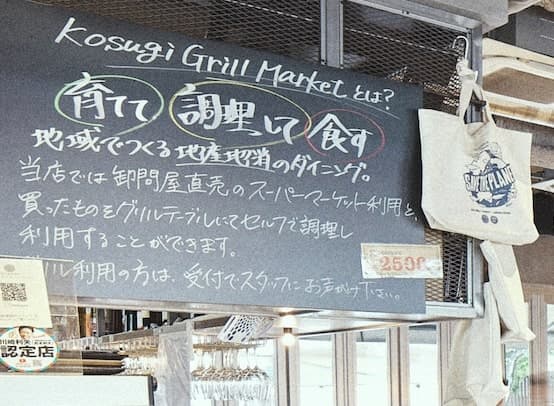 Kosugi Grill Market とは?
育てて 調理して 食す
地域でつくる地産地消のダイニング。
当店では卸問屋直売のスーパーマーケット利用と、
買ったものをグリルテーブルにてセルフで調理し
利用することができます。
利用の方は、受付でスタッフにお声がけ下さい。
2500
SAVE THE PLANET
認定店